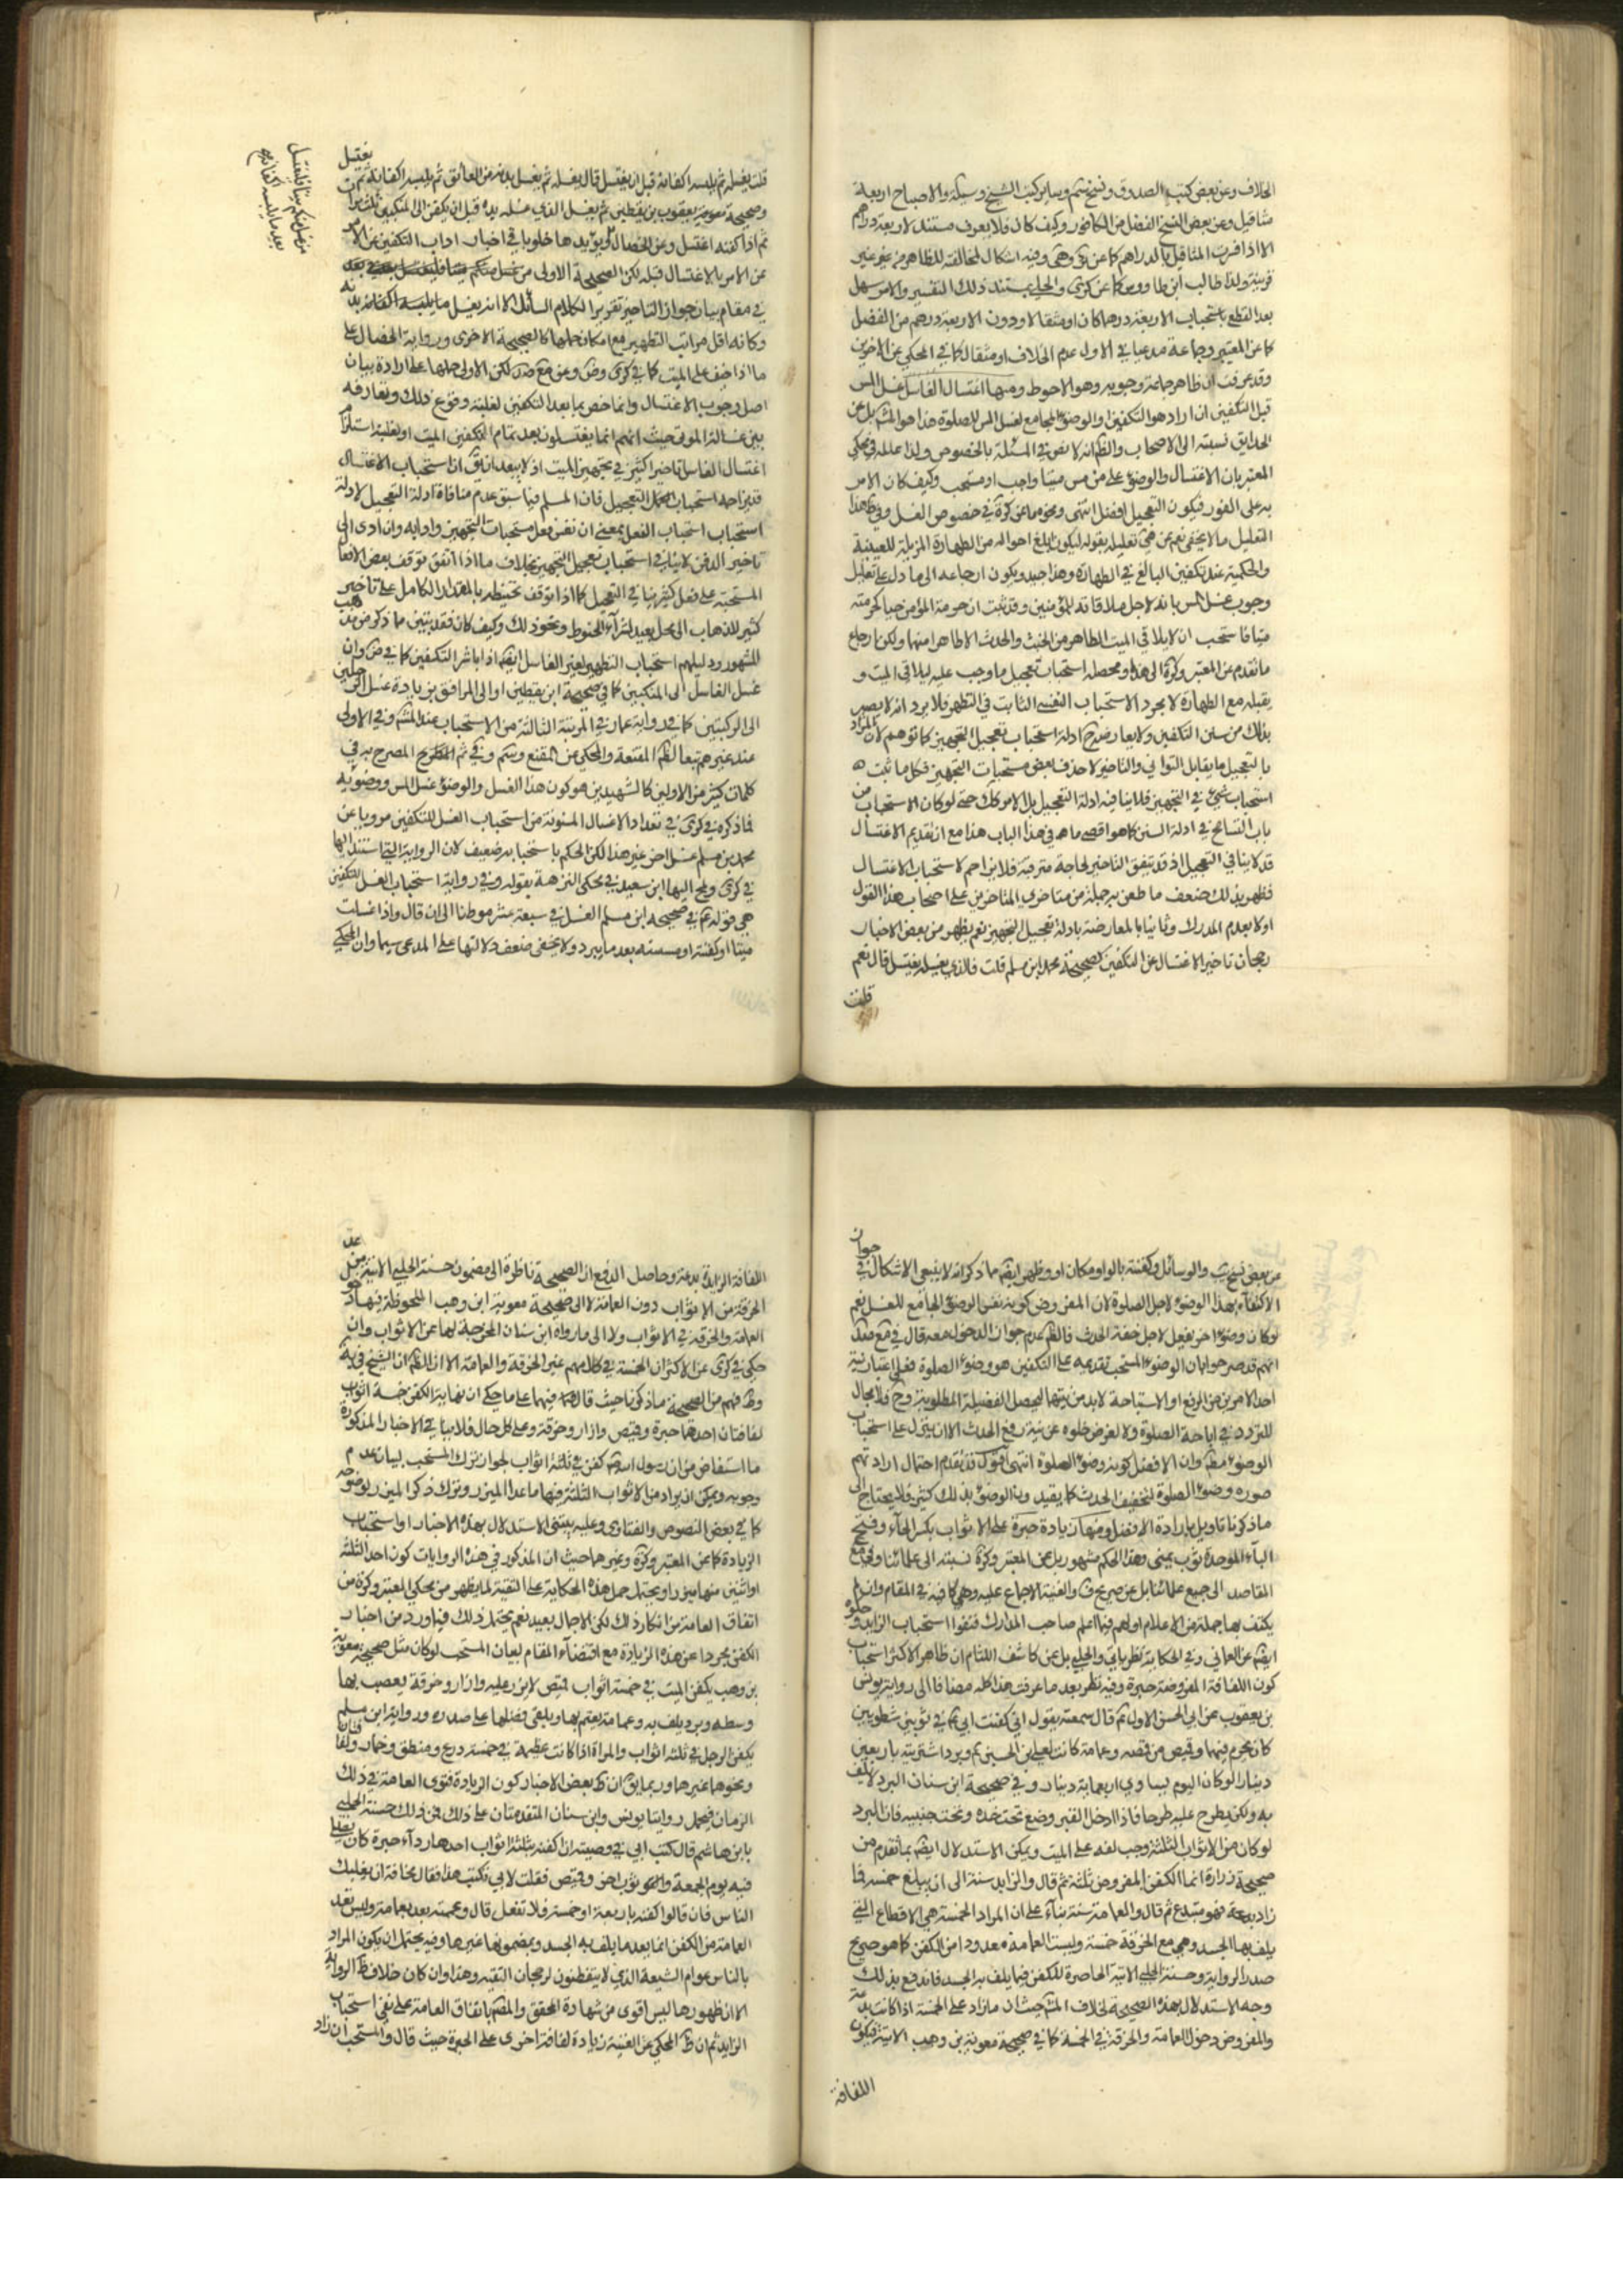 الخلاف وعن بعض كتب الصدوق ونسخ وساير كتب الشيخ والاصباح اربعة
مثاقيل وعن بعض النسخ الفضل من الكافور وكيف كان فلا يعرف مستند لاربعة دراهم
الا اذا فسرت المثاقيل بالدراهم كما عن وفيه اشكال لمخالفته للظاهر من غير
قرينة ولذا طالب ابن طاووس كما عن كرى والحلي بمستند ذلك التفسير والامر سهل
بعد القطع باستحباب الاربعة درهما كان او مثقالا ودون الاربعة درهم من الفضل
كما عن المعتبر وجماعة مدعيا في الاول عدم الخلاف او مثقال كما في المحكي عن الاخرين
وقد عرفت ان ظاهر جماعة وجوبه وهو الاحوط ومنها اغتسال الغاسل غسل المس
قبل التكفين ان اراد هو التكفين او الوضوء الجامع لغسل المس للصلوة هذا هو المشهور بل عن
الحدايق نسبته الى الاصحاب والظم انه لا نص في المسئلة بالخصوص ولذا علله في محكي
المعتبر بان الاغتسال والوضوء على من مس ميتا واجب او مستحب وكيف كان الامر
به على الفور فيكون التعجيل افضل انتهى ونحوه ما عن كرة في خصوص الغسل وفي هذا
التعليل ما لا يخفى نعم عن تعليله بقوله ليكون ابلغ احواله من الطهارة المزيلة للعينية
والحكمية عند تكفين البالغ في الطهارة وهذا جيد ويكون ارجاعه الى ما دل على تعليل
وجوب غسل المس بانه لاجل ملاقاته للمؤمنين وقد ثبت ان حرمة المؤمن حيا كحرمته
ميتا فاستحب ان لا يلاقي الميت الطاهر من الخبث والحدث الا طاهرا منهما ولكن ارجاع
ما تقدم عن المعتبر وكرة الى هذا ومحصله استحباب تعجيل ما وجب عليه ليلاقي الميت و
يقبله مع الطهارة لا مجرد الاستحباب النفسي الثابت في التطهر فلا يرد انه لا يصير
بذلك من سنن التكفين ولا يعارض ح ادلة استحباب تعجيل التجهيز كما توهم لان المراد
بالتعجيل ما يقابل التواني والتاخير لا حذف بعض مستحبات التجهيز فكل ما ثبت
استحباب شيء في التجهيز فلا ينافيه ادلة التعجيل بل الامر كك حتى لو كان الاستحباب من
باب التسامح في ادلة السنن كما هو اقصى ما هو في هذا الباب هذا مع ان تقديم الاغتسال
قد لا ينافي التعجيل اذ قد يتفق التاخير لحاجة مترقبة فلا يزاحم لاستحباب الاغتسال
فظهر بذلك ضعف ما طعن به جملة من متاخري المتاخرين على اصحاب هذا القول
اولا بعدم المدرك وثانيا بالمعارضة بادلة تعجيل التجهيز نعم يظهر من بعض الاخبار
رجحان تاخير الاغتسال عن التكفين كصحيحة محمد بن مسلم قلت فالذي يغسله يغتسل قال نعم
قلت
يغتسل
قلت يغسله ثم يلبسه اكفانه قبل ان يغتسل قال يغسله ثم يغسل يديه من العاتق ثم يلبسه اكفانه ثم
وصحيحة يعقوب بن يقطين ثم يغسل الذي غسله يده قبل ان يكفن الى المنكبين ثلث مرات
ثم اذا كفنه اغتسل وعن الخصال ويؤيدها خلو باقي اخبار اداب التكفين عن الامر
عن الامر بالاغتسال قبله لكن الصحيحة الاولى
من غسل منكم ميتا فليغتسل
بعد ما يلبسه اكفانه
في مقام بيان جواز التاخير تقريرا لكلام السائل الا انه يغسل ما يلبسه اكفانه يديه
وكانه اقل مراتب التطهير مع امكان حملها كالصحيحة الاخرى ورواية الخصال على
ما اذا خيف على الميت كما في كرى وض وعن مع صد لكن الاولى حملها على ارادة بيان
اصل وجوب الاغتسال وانما خص بما بعد التكفين لغلبة وقوع ذلك وتعارفه
بين غسالة الموتى حيث انهم انما يغتسلون بعد تمام التكفين الميت او لغلبة استلزام
اغتسال الغاسل تاخيرا كثيرا في تجهيز الميت اذ لا يبعد ان يق ان استحباب الاغتسال
قد يزاحمه استحباب التعجيل فان المسلم فيما سبق عدم منافاة ادلة التعجيل لادلة
استحباب استحباب الفعل بمعنى ان نفس فعل مستحبات التجهيز وادابه وان ادى الى
تاخير الدفن لا ينافي استحباب تعجيل التجهيز بخلاف ما اذا اتفق توقف بعض الافعال
المستحبة على فعل كثير ينافي التعجيل كما اذا توقف تحنيطه بالمقدار الكامل على تاخير
كثير للذهاب الى محل بعيد لشراء الحنوط ونحو ذلك وكيف كان فقد تبين مما ذكر من مذهب
المشهور ودليلهم استحباب التطهير لغير الغاسل ايضا اذا باشر التكفين كما في ض وان
غسل الغاسل الى المنكبين كما في صحيحة ابن يقطين او الى المرافق بزيادة غسل الرجلين
الى الركبتين كما في رواية عمار في المرتبة الثانية من الاستحباب عند المشهور وفي الاولى
عند غيرهم تبعا لظاهر المقنعة والمحكي عن المقنع ثم الظاهر المصرح به في
كلمات كثير من الاولين كالشهيدين هو كون هذا الغسل والوضوء غسل المس ووضوئه
فما ذكره في كرى في تعداد الاغسال المسنونة من استحباب الغسل للتكفين مرويا عن
محمد بن مسلم غسل اخر غير هذا لكن الحكم باستحبابه ضعيف لان الرواية التي استند اليها
في كرى ولمح اليها ابن سعيد في محكي النزهة بقوله وفي رواية استحباب الغسل للتكفين
هي قوله ع في صحيحة ابن مسلم الغسل في سبعة عشر موطنا الى ان قال واذا غسلت
ميتا او كفنته او مسسته بعد ما يبرد ولا يخفى ضعف دلالتها على المدعى سيما وان المحكي
جواز
عن بعض نسخ يب والوسائل وكفنته بالواو مكان او وظهر ايضا مما ذكر انه لا ينبغي الاشكال في
الاكتفاء بهذا الوضوء لاجل الصلوة لان المفروض كونه نفس الوضوء الجامع للغسل نعم
لو كان وضوء اخر يفعل لاجل خفة الحدث فالظاهر عدم جواز الدخول معه قال في مع صد
انهم قد صرحوا بان الوضوء المستحب تقديمه على التكفين هو وضوء الصلوة فعلى اعتبار نية
احد الامرين من الرفع او الاستباحة لا بد من نيتها ليحصل الفضيلة المطلوبة وح فلا مجال
للتردد في اباحة الصلوة ولا لفرض خلوه عن نية رفع الحدث الا ان ينزل على استحباب
الوضوء مطلقا وان الافضل كونه وضوء الصلوة انتهى اقول قد تقدم احتمال ارادتهم
صورة وضوء الصلوة لتخفيف الحدث كما يفيد ونية الوضوء بذلك كثير فلا يحتاج الى
ما ذكر تاويل بارادة الافضل ومنها زيادة حبرة على الاثواب بكسر الحاء وفتح
الباء الموحدة ثوب يمني وهذا الحكم مشهور بل عن المعتبر وكرة نسبته الى علمائنا وفي جامع
المقاصد الى جميع علمائنا بل عن صريح ف والغنية الاجماع عليه وهي كافية في المقام وان لم
يكتف بها جملة من الاعلام اولهم فيما اعلم صاحب المدارك فنفوا استحباب الزايد وحكوه
ايضا عن العماني وفي الحكاية نظر ياتي والحلبي بل عن كاشف اللثام ان ظاهر الاكثر استحباب
كون اللفافة المفروضة حبرة وفيه نظر بعد ما عرفت هذا كله مضافا الى رواية يونس
بن يعقوب عن ابي الحسن الاول ع قال سمعته يقول اني كفنت ابي ع في ثوبين شطويين
كان يحرم فيهما وقميص من قمصه وعمامة كانت لعلي بن الحسين ع وبرد اشتريته باربعين
دينارا لو كان اليوم يساوي اربعماية دينار وفي صحيحة ابن سنان البرد لا يلف
به ولكن يطرح عليه طرحا فاذا ادخل القبر وضع تحت خده وتحت جنبيه فان البرد
لو كان من الاثواب الثلثة وجب لفه على الميت ويمكن الاستدلال ايضا بما تقدم من
صحيحة زرارة انما الكفن المفروض ثلثة ثم قال والزايد سنة الى ان يبلغ خمسة فما
زاد بدعة فهو مبتدع ثم قال والعمامة سنة بناء على ان المراد الخمسة هي الاقطاع التي
يلف بها الجسد وهي مع الخرقة خمسة وليست العمامة معدودا من الكفن كما هو صريح
صدر الرواية وحسنة الحلبي الاتية الحاصرة للكفن فيما يلف به الجسد فاندفع بذلك
وجه الاستدلال بهذه الصحيحة لخلاف المشهور حيث ان ما زاد على الخمسة اذا كانت بدعة
والمفروض دخول العمامة والخرقة في الخمسة كما في صحيحة معوية بن وهب الاتية فيكون
اللفافة
عد
اللفافة الزايدة بدعة وحاصل الدفع ان الصحيحة ناظرة الى مضمون حسنة الحلبي الاتية من جعل
الخرقة من الاثواب دون العمامة لا الى صحيحة معوية ابن وهب الملحوظة فيها دخول
العمامة والخرقة في الاثواب ولا الى ما رواه ابن سنان المخرجة لهما عن الاثواب وان
حكي في كرى عن الاكثر ان الخمسة في كلامهم غير الخرقة والعمامة الا ان الظاهر ان الشيخ في يه
وط فهم من الصحيحة ما ذكرنا حيث قال فيهما على ما حكي ان نهاية الكفن خمسة اثواب
لفافتان احدهما حبرة وقميص وازار وخرقة وعلى كل حال فلا ينافي الاخبار المذكورة
ما استفاض من ان رسول الله ص كفن في ثلثة اثواب لجواز ترك المستحب لبيان عدم
وجوبه ويمكن ان يراد من الاثواب الثلثة فيها ما عدا الميزر وترك ذكر الميزر لوضوحه
كما في بعض النصوص والفتاوى وعليه يبتنى الاستدلال بهذه الاخبار او استحباب
الزيادة كما عن المعتبر وكرة وغيرهما حيث ان المذكور في هذه الروايات كون احد الثلثة
او اثنين منها ميزرا ويحتمل حمل هذه الحكاية على التقية لما يظهر من محكي المعتبر وكرة من
اتفاق العامة من انكار ذلك لكن الاجمال بعيد نعم يحتمل ذلك فيما ورد من اخبار
الكفن مجردا عن هذه الزيادة مع اقتضاء المقام لبيان المستحب لو كان مثل صحيحة معوية
بن وهب يكفن الميت في خمسة اثواب قميص لا يزر عليه وازار وخرقة يعصب بها
وسطه وبرد يلف به وعمامة يعتم بها ويلقى فضلها على صدره ورواية ابن مسلم
يكفن الرجل في ثلثة اثواب والمراة اذا كانت عظيمة في خمسة درع ومنطق وخمار ولفافتان
ونحوها غيرها وربما يق ان ظ بعض الاخبار كون الزيادة فتوى العامة في ذلك
الزمان فيحمل روايتا يونس وابن سنان المتقدمتان على ذلك فمن ذلك حسنة الحلبي
بابن هاشم قال كتب ابي في وصيته ان اكفنه بثلثة اثواب احدها رداء حبرة كان يصلي
فيه يوم الجمعة وثوب اخر وقميص فقلت لابي لم تكتب هذا فقال مخافة ان يغلبك
الناس فان قالوا كفنه باربعة او خمسة فلا تفعل قال وعممه بعد بعمامة وليس تعد
العمامة من الكفن انما يعد ما يلف به الجسد وبمضمونها غيرها وفيه يحتمل ان يكون المراد
بالناس عوام الشيعة الذين لا يتفطنون لرجحان التقية وهذا وان كان خلاف ظ الرواية
الا ان ظهورها ليس اقوى من شهادة المحقق والمصنف باتفاق العامة على نفي استحباب
الزايد ثم ان ظ المحكي عن الغنية زيادة لفافة اخرى على الحبرة حيث قال والمستحب ان زاد